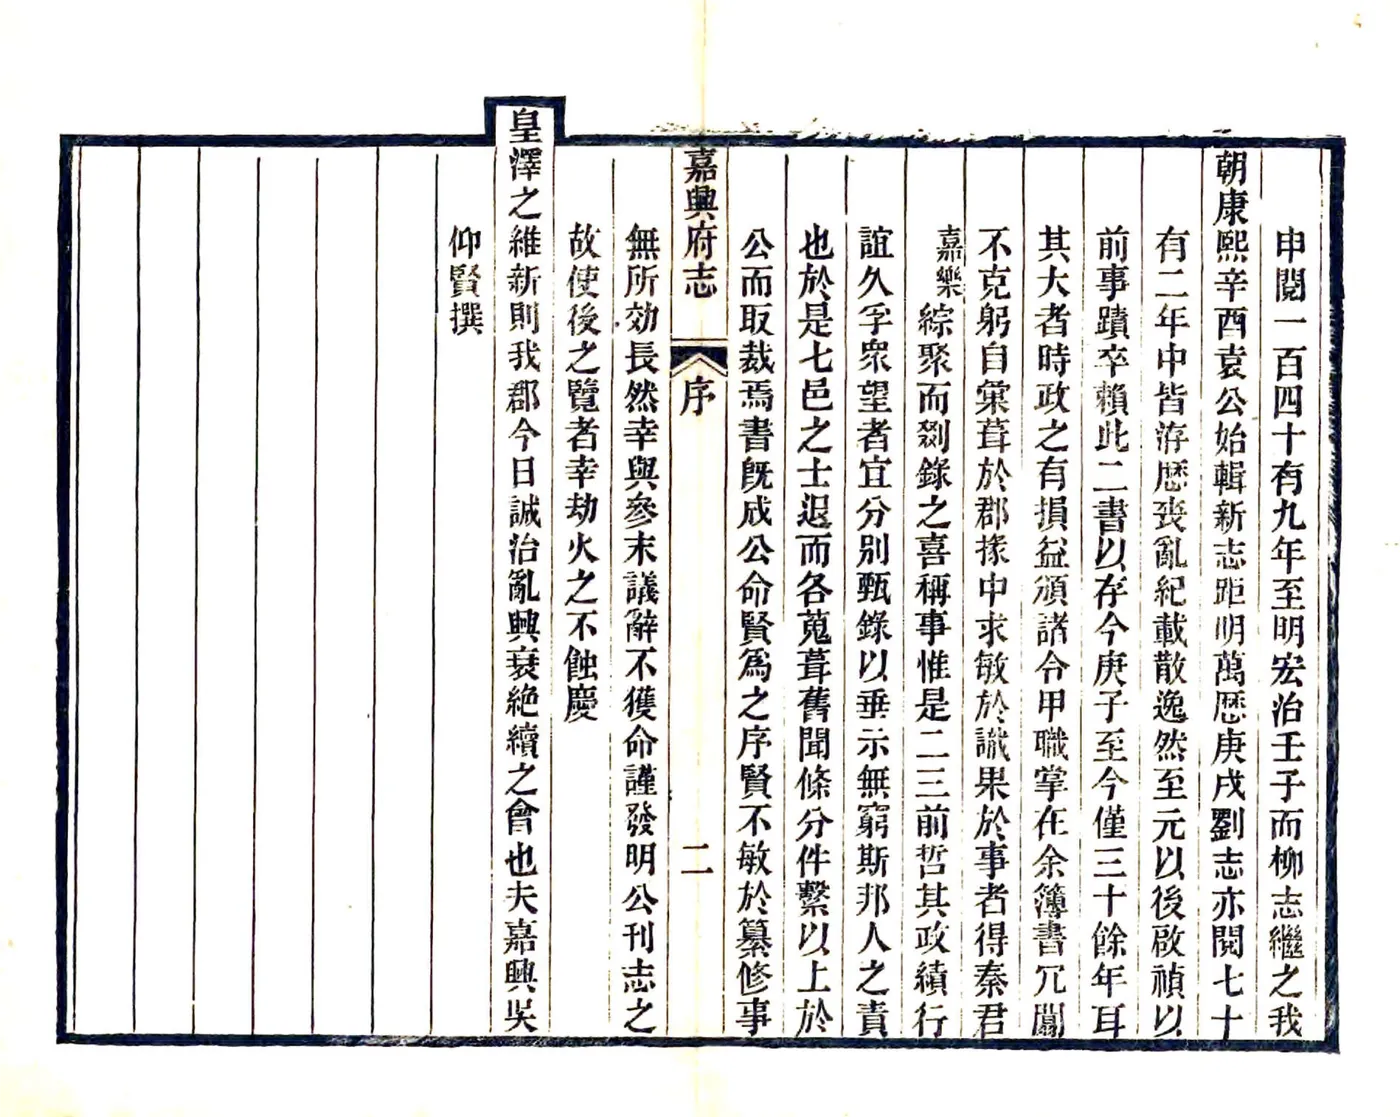 申閱一百四十有九年至明宏治壬子而柳志繼之我
朝康熙辛酉袁公始輯新志距明萬歷庚戌劉志亦閱七十
有二年中皆洊歷喪亂紀載散逸然至元以後啟禎以
前事蹟卒賴此二書以存今庚子至今僅三十餘年耳
其大者時政之有損益頒諸令甲職掌在余簿書冗闒
不克躬自彙葺於郡掾中求敏於識果於事者得秦君
嘉樂綜聚而劉錄之喜稱事惟是二三前哲其政績行
誼久孚眾望者宜分別甄錄以垂示無窮斯邦人之責
也於是七邑之士退而各蒐葺舊聞條分件繫以上於
公而取裁焉書旣成公命賢爲之序賢不敏於纂修事
嘉興府志
序
二
無所効長然幸與參末議辭不獲命謹發明公刊志之
故使後之覽者幸劫火之不蝕慶
皇澤之維新則我郡今日誠治亂興衰絶續之會也夫嘉興吳
仰賢撰